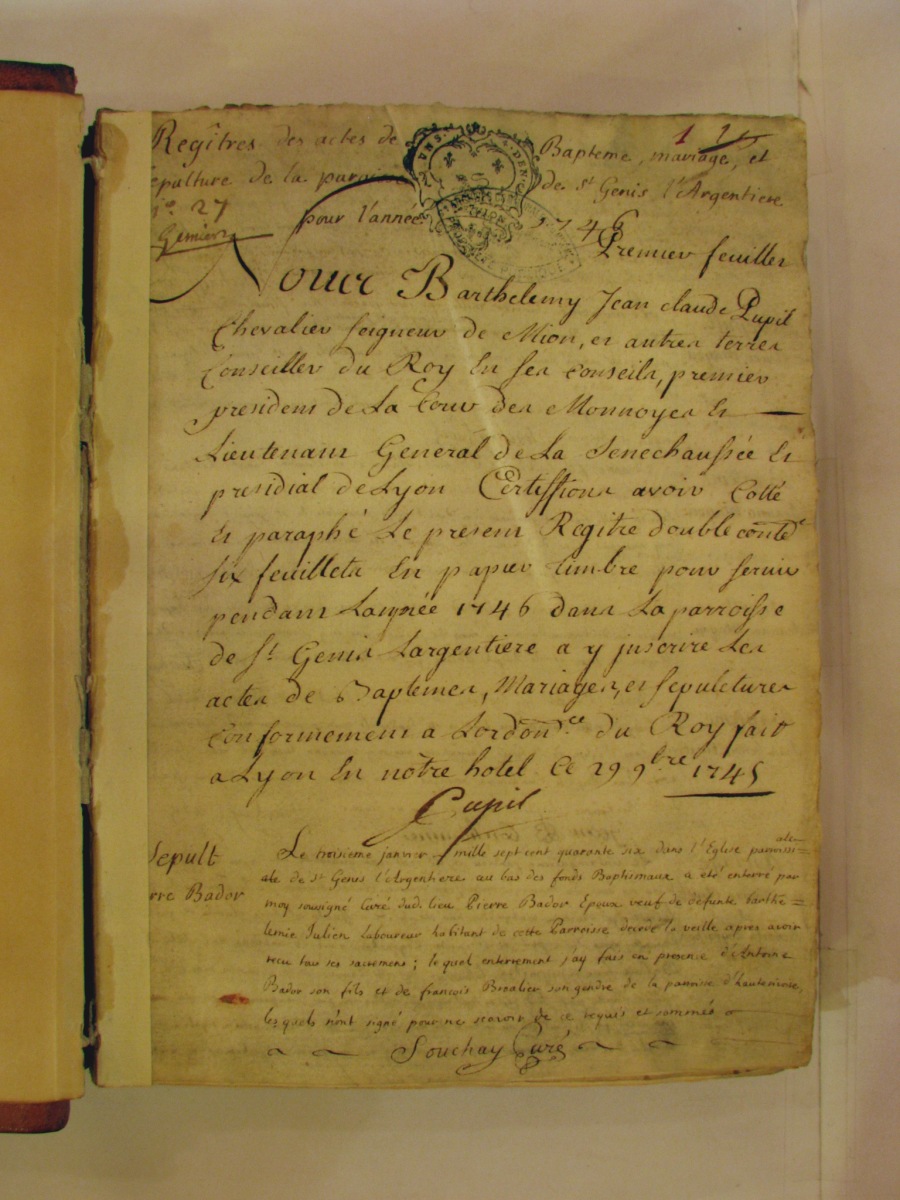 Regîtres des actes de Bapteme, mariage, et
epulture de la paroisse de St Genis l'Argentiere
27 pour l'année 1746
Gemier
Premier feuillet
Nous Barthelemy Jean claude Pupil
Chevalier seigneur de Mion, et autres terres
Conseiller du Roy En ses conseils, premier
president de La Cour des Monnoyes Et
Lieutenant General de La Senechaussée Et
presidial de Lyon Certiffions avoir Cotté
Et paraphé Le present Regitre double conte
six feuillets En papier timbre pour servir
pendant Lannée 1746 dans La parroisse
de St Genis Largentiere a y jnscrire Les
actes de Baptemes, Mariages, et sepultures
conformement a Lordonce du Roy fait
a Lyon En nôtre hotel Ce 29 9bre 1745
Pupil
Sepult
rre Bador
Le troisieme janvier mille sept cent quarante six dans l'Eglise paroissi=
ale de St Genis l'Argentiere au bas des fonds Baptismaux a été enterré par
moy sousigné Curé dud. lieu Pierre Bador Epoux veuf de defunte barthe=
lemie Julien Laboureur habitant de cette Parroisse decedé la veille apres avoir
recu tous ses sacremens; le quel enterrement j'ay fais en presence d'Antoine
Bador son fils et de francois son gendre de la paroisse d'hauterivoire,
les quels n'ont signé pour ne scavoir de ce requis et sommés
Souchay Curé